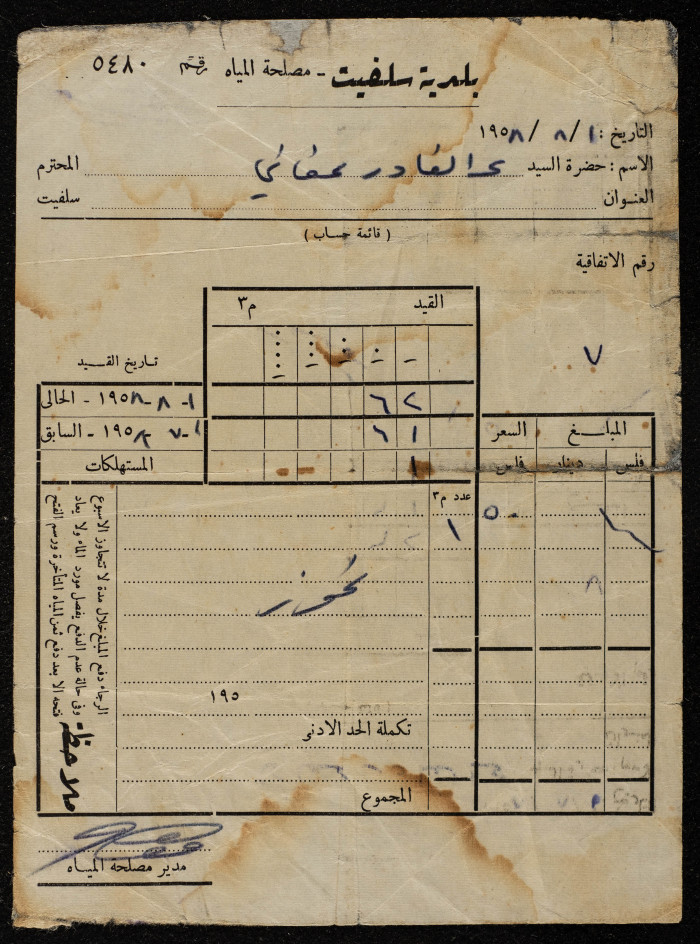 بلدية سلفيت - مصلحة المياه رقم ٥٤٨٠
التاريخ : ١ / ٨ / ١٩٥٨
الاسم : حضرة السيد عبد القادر المحترم
العنوان سلفيت
( قائمة حساب )
رقم الاتفاقية
٧
القيد م٣
تاريخ القيد
١ - ٨ - ١٩٥٨ - الحالى ٦٢
١ - ٧ - ١٩٥٨ - السابق ٦١
المستهلكات ١
المبلغ السعر
فلس دينار فلس
عدد م٣
١ ٥٠
تموز
١٩٥
تكملة الحد الادنى
المجموع
ملاحظة
الرجاء دفع المبلغ خلال مدة لا تتجاوز الاسبوع
وفى حالة عدم الدفع يفصل مورد الماء ولا يعاد
فتحه الا بعد دفع ثمن المياه المتأخرة ورسم الفتح
مدير مصلحة المياه